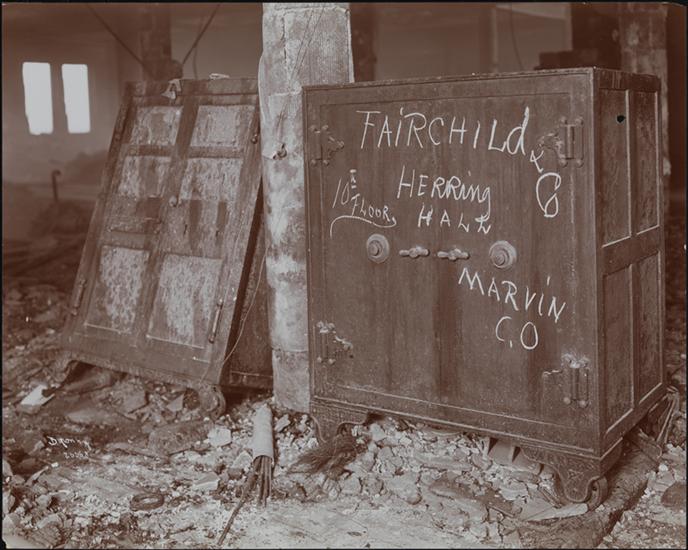 FAIRCHILD & Co
10th FLOOR
HERRING
HALL
MARVIN
CO.